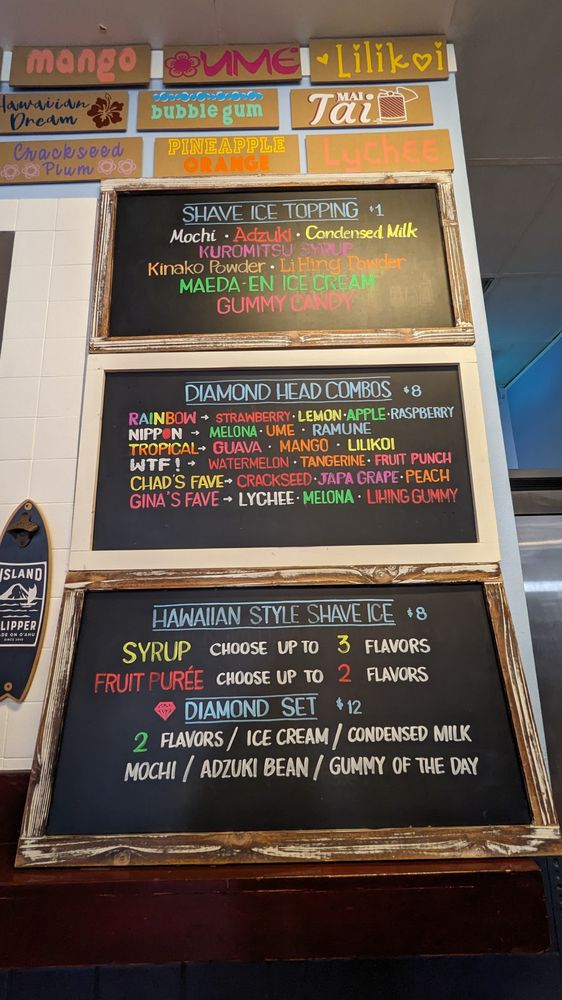 mango UME Lilikoi
Hawaiian Dream bubble gum MAI Tai
Crackseed Plum PINEAPPLE ORANGE Lychee
SHAVE ICE TOPPING $1
Mochi · Adzuki · Condensed Milk
KUROMITSU SYRUP
Kinako Powder · Li Hing Powder
MAEDA-EN ICE CREAM
GUMMY CANDY
DIAMOND HEAD COMBOS $8
RAINBOW → STRAWBERRY · LEMON · APPLE · RASPBERRY
NIPPON → MELONA · UME · RAMUNE
TROPICAL → GUAVA · MANGO · LILIKOI
WTF! → WATERMELON · TANGERINE · FRUIT PUNCH
CHAD'S FAVE → CRACKSEED · JAPA GRAPE · PEACH
GINA'S FAVE → LYCHEE · MELONA · LIHING GUMMY
ISLAND
SLIPPER
MADE ON O'AHU
SINCE 1946
HAWAIIAN STYLE SHAVE ICE $8
SYRUP CHOOSE UP TO 3 FLAVORS
FRUIT PURÉE CHOOSE UP TO 2 FLAVORS
DIAMOND SET $12
2 FLAVORS / ICE CREAM / CONDENSED MILK
MOCHI / ADZUKI BEAN / GUMMY OF THE DAY